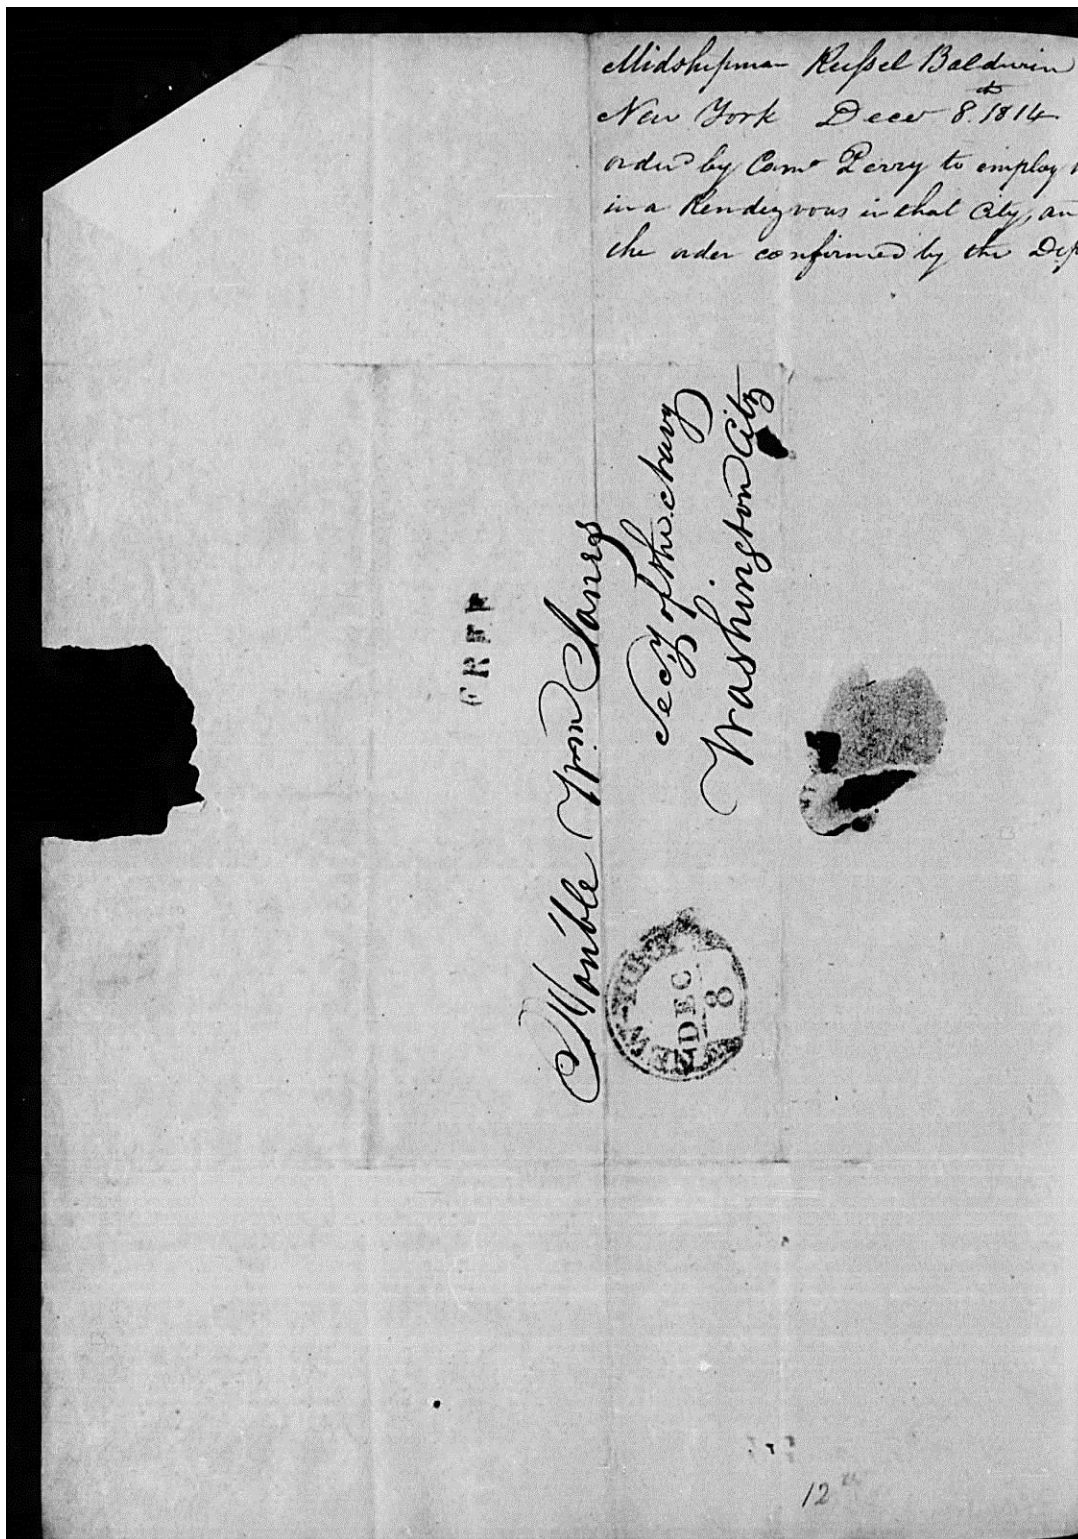 Midshipman Russel Baldwin
New York Decer 8.th 1814
order'd by Comr Perry to employ
in a Rendezvous in that City, an
the order confirmed by the Dep
FREE
Honble Wm. Jones
Secy of the Navy
Washington City
NEW-YORK
DEC
8
12